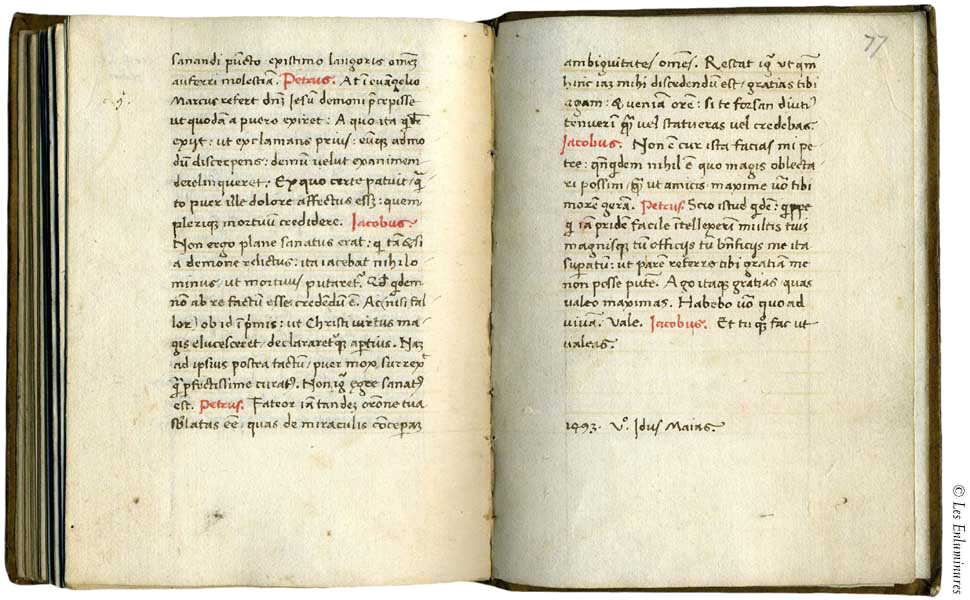 sanandi pūcto existimo langoris omēz
auferri molestiā. Petrus. At ī euāngelio
Marcus refert dnz̄ Iesu᷒ demoni p̄cepisse
ut quodā a puero exiret: A quo ita
exijt: ut exclamans prius: eūqz admo
dū discerpens: demū velut exanimem
derelinqueret. Ex quo certe patuit,
to puer ille dolore affectus essz: quem
pleriqz mortuū credidere. Jacobus.
Non ergo plane sanatus erat: qi tā & si
a demone relictus: ita iacebat nihilo
minus, ut mortuus putaret᷒. Qd̄ qdem
nō ab re factū esse: credendū ē. Ac (nisi fal
lor) ob id īp̄mis: ut Christi virtus ma
gis elucesceret, declarareturqz aptius. Naz
ad ipsius postra tactū, puer mox surrex᷒
q̄ pfectissime curat᷒. Non ig᷒ egre sanat᷒
est. Petrus. Fateor iā tandez orōne tua
sblatas eē, quas de miraculis cōcepaz
77
ambiguitates om̄es. Restat ig᷒ ut qm̄
hinc iaz mihi discedendū est, gratias tibi
agam: & ueniā orē: si te forsan diuti᷒
tenueri q̄ vel statueras vel credebas.
Jacobus. Non ē cur ista facias mi pe
tre: qn̄qdem nihil ē quo magis oblecta
ri possim, q̄ ut amicis maxime uō tibi
morē gerā. Petrus. Scio istud qdē: qippe
qi iā pridē facile ītellexerī multis tuis
magnisqz tū officijs tū bn̄ficijs me ita
supatū: ut parē referre tibi gratiā me
non posse putē. Ago itaqz gratias, quas
valeo maximas. Habebo uō quoad
vivā. Vale. Jacobus. Et tu qz fac ut
ualeas.
1493. Vº. Idus Maias.
© Les Enluminures